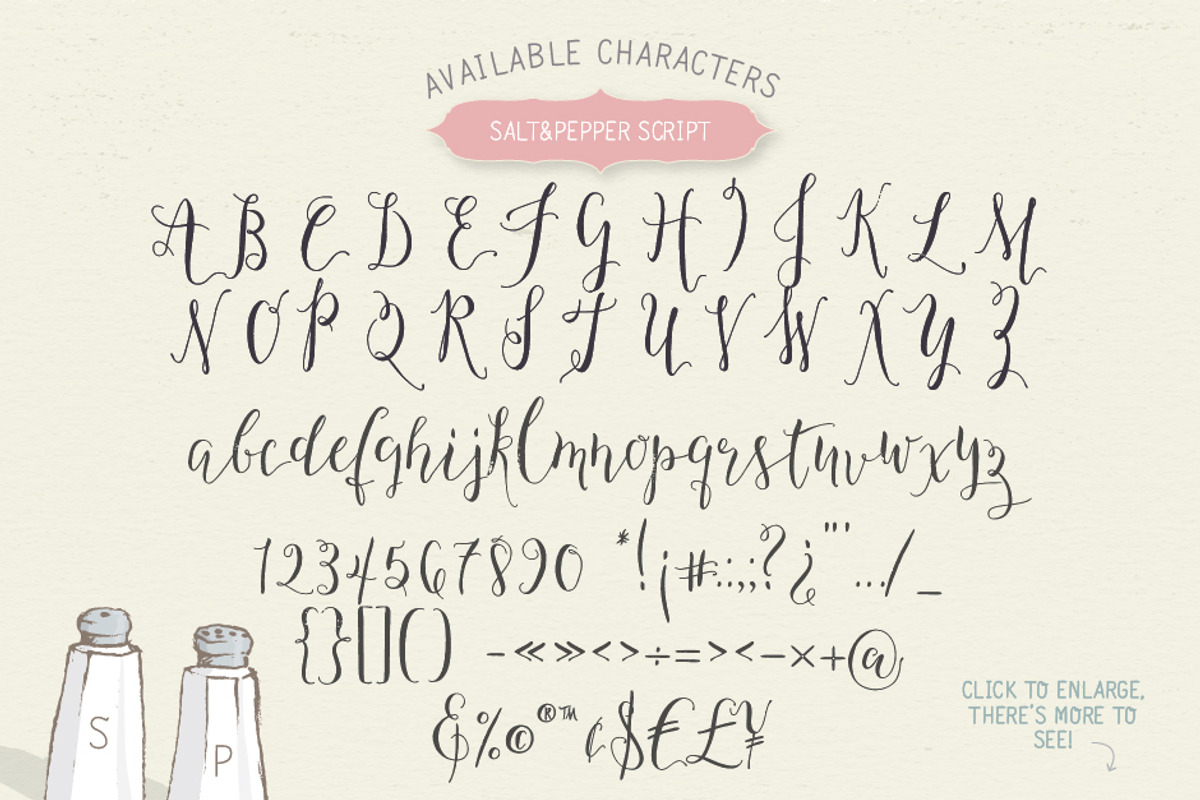 AVAILABLE CHARACTERS
SALT&PEPPER SCRIPT
A B C D E F G H I J K L M
N O P Q R S T U V W X Y Z
abcdefghijklmnopqrstuvwxyz
1234567890 *!¡#:.,;?¿"'.../_
{}[]() -«»<>÷=><−×+@
&%©®™¢$€£¥
S
P
CLICK TO ENLARGE,
THERE'S MORE TO
SEE!